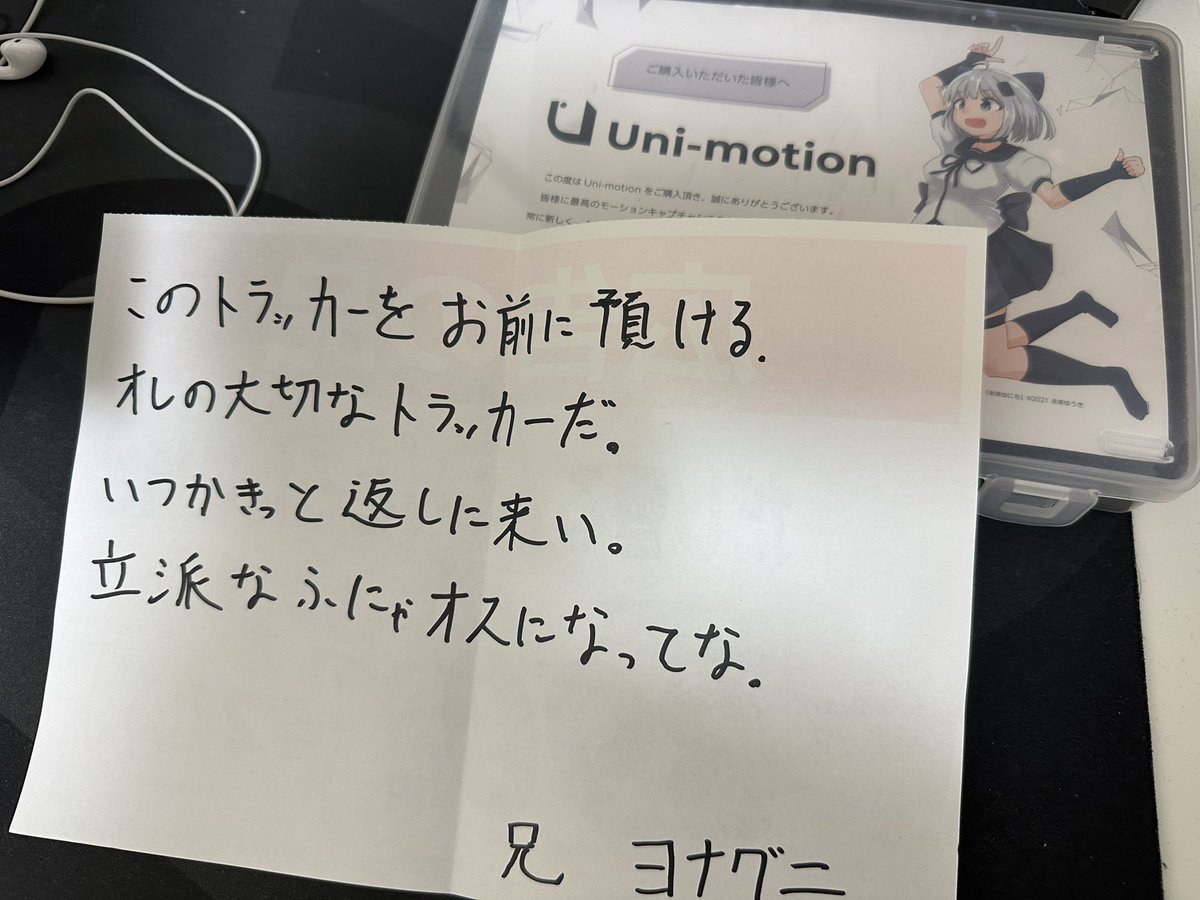 ご購入いただいた皆様へ
Uni-motion
この度は Uni-motion をご購入頂き、誠にありがとうございます。
皆様に最高のモーションキャプチャ
常に新しく、
「未来ゆにも」©2021 未来ゆうき
このトラッカーをお前に預ける.
オレの大切なトラッカーだ。
いつかきっと返しに来い。
立派なふにゃオスになってな.
兄 ヨナグニ